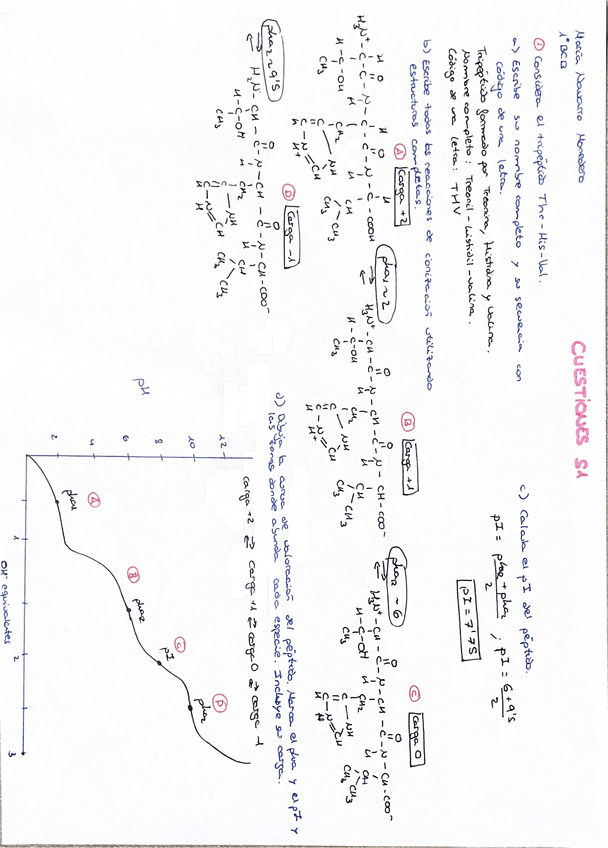 María Navarro Monedero
1º BCD
CUESTIONES S1
① Considera el tripéptido Thr-His-Val.
a) Escribe su nombre completo y su secuencia con
código de una letra.
Tripéptido formado por Treonina, Histidina y Valina.
Nombre completo: Treonil-histidil-valina.
Código de una letra: THV
b) Escribe todas las reacciones de ionización utilizando
estructuras completas.
Ⓐ Carga +2
pka1 ~ 2
Ⓑ Carga +1
pka2 ~ 6
Ⓒ Carga 0
pka2 ~ 9'5
Ⓓ Carga -1
c) Calcula el pI del péptido.
pI = pka2 + pka2 / 2 ; pI = 6 + 9'5 / 2
pI = 7'75
d) Dibuja la curva de valoración del péptido. Marca el pka y el pI y
las zonas donde abunda cada especie. Incluye su carga.
carga +2 ⇄ carga +1 ⇄ carga 0 ⇄ carga -1
pH
12
10
8
6
4
2
Ⓐ
pka1
Ⓑ
pka2
Ⓒ
pI
Ⓓ
pka2
1
2
3
OH⁻ equivalentes